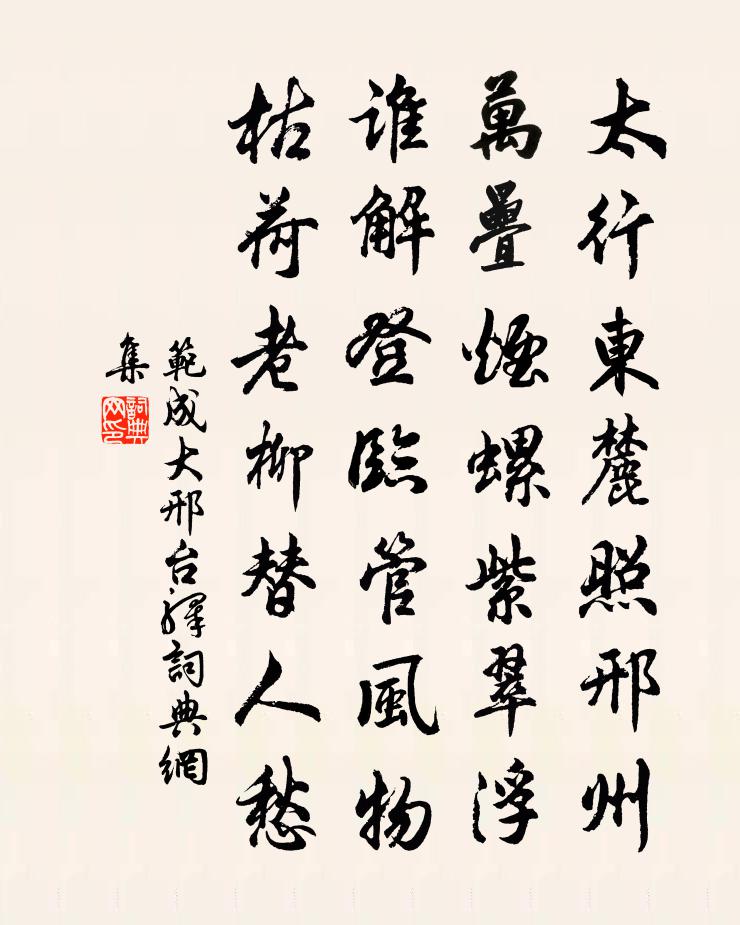 太行東麓照邢州
萬疊煙螺紫翠浮
谁解登臨管風物
枯荷老柳替人愁
範成大邢台驛詞典網
集
詞典
网印